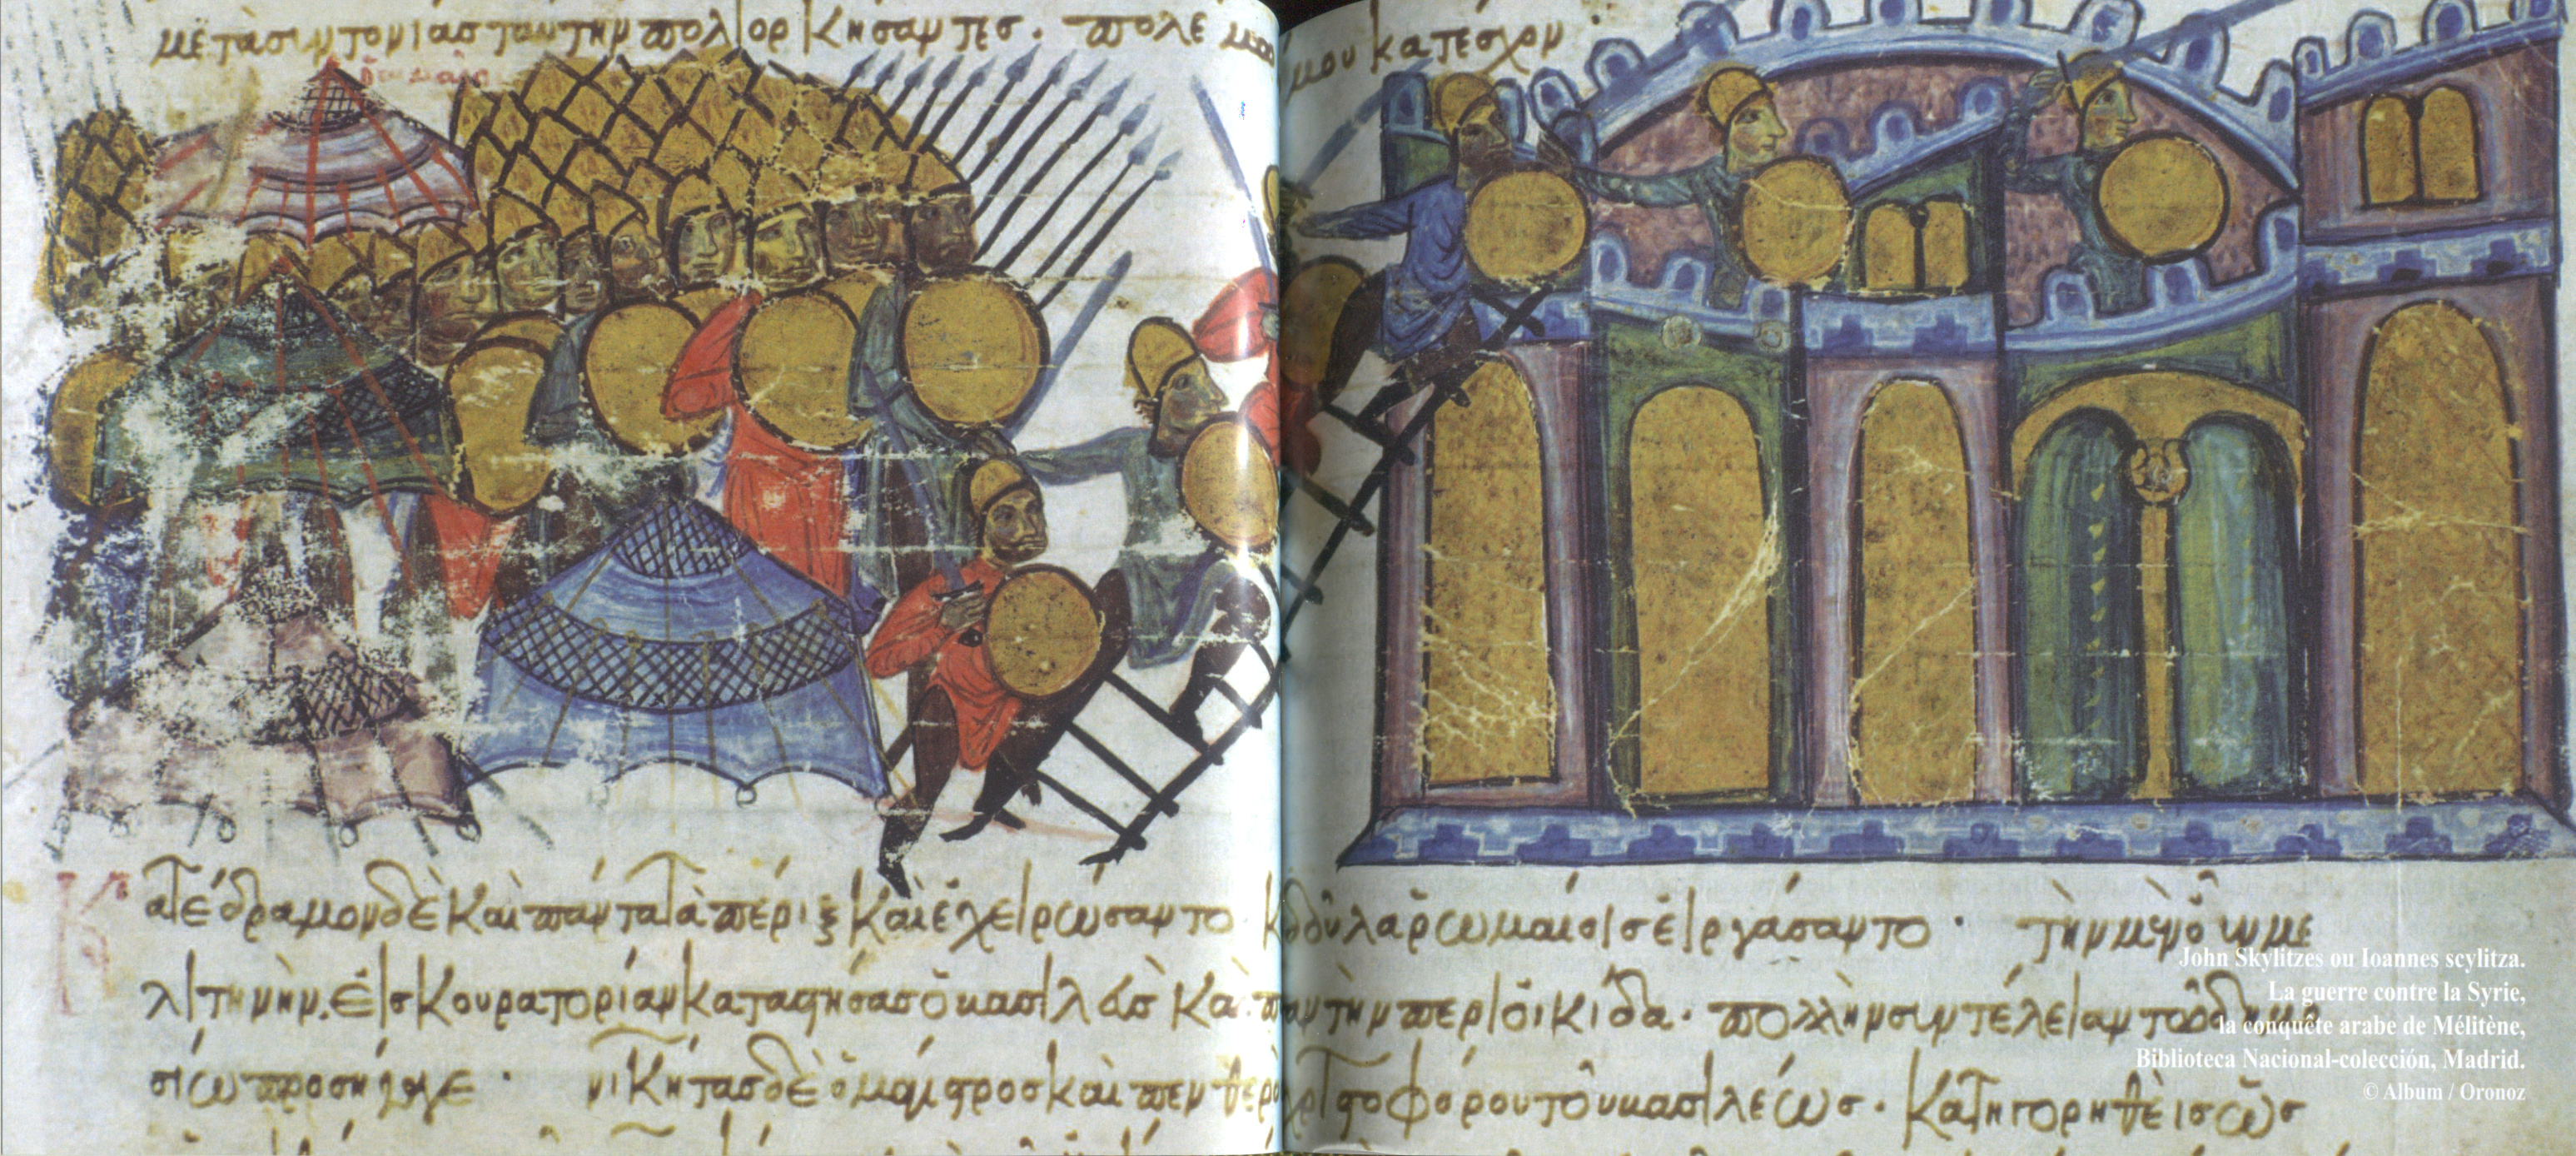 μετὰ συντονίας ταύτην πολιορκήσαντες. πολέμου κατέσχον
κατέδραμον δὲ καὶ πάντα τὰ πέριξ καὶ ἐχειρώσαντο δοῦλα ῥωμαίοις εἰργάσαντο. τὴν μὲν οὖν με
λιτηνὴν εἰς κουρατορίαν καταστήσας ὁ βασιλεὺς τὴν περιοικίδα. πολλὴν συντέλειαν τῷ δημο
σίῳ προσήγαγε. νικήτας δὲ ὁ μάγιστρος καὶ πενθερὸς χριστοφόρου τοῦ βασιλέως. κατηγορηθεὶς ὡς
John Skylitzes ou Ioannes scylitza.
La guerre contre la Syrie,
la conquête arabe de Mélitène,
Biblioteca Nacional-colección, Madrid.
© Album / Oronoz